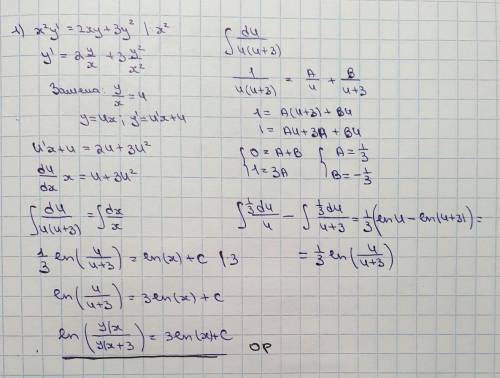 1) x²y' = 2xy + 3y² | : x²
y' = 2 y/x + 3 y²/x²
Замена: y/x = u
y = ux; y' = u'x + u
u'x + u = 2u + 3u²
du/dx x = u + 3u²
∫ du/u(u+3) = ∫ dx/x
1/3 ln(u/u+3) = ln(x) + C | · 3
ln(u/u+3) = 3ln(x) + C
ln(y/x / y/x+3) = 3ln(x) + C
ОР
∫ du/u(u+3)
1/u(u+3) = A/u + B/u+3
1 = A(u+3) + Bu
1 = Au + 3A + Bu
{ 0 = A + B { A = 1/3
{ 1 = 3A { B = -1/3
∫ 1/3 du/u - ∫ 1/3 du/u+3 = 1/3 (ln u - ln(u+3)) =
= 1/3 ln(u/u+3)